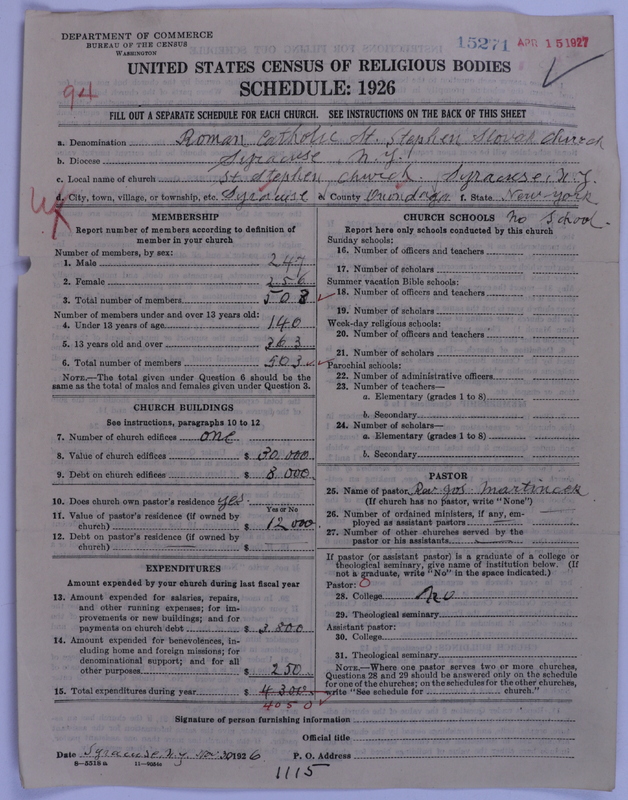 DEPARTMENT OF COMMERCE
BUREAU OF THE CENSUS
WASHINGTON
15271 APR 15 1927
UNITED STATES CENSUS OF RELIGIOUS BODIES
SCHEDULE: 1926
94
FILL OUT A SEPARATE SCHEDULE FOR EACH CHURCH. SEE INSTRUCTIONS ON THE BACK OF THIS SHEET
a. Denomination Roman Catholic St. Stephen Slovak Church
b. Diocese Syracuse N.Y.
c. Local name of church St Stephen Church. Syracuse. N.Y.
d. City, town, village, or township, etc. Syracuse e. County Onondaga f. State New-York
MEMBERSHIP
Report number of members according to definition of
member in your church
Number of members, by sex:
1. Male 247
2. Female 256
3. Total number of members 503
Number of members under and over 13 years old:
4. Under 13 years of age 140
5. 13 years old and over 363
6. Total number of members 503
NOTE.—The total given under Question 6 should be the
same as the total of males and females given under Question 3.
CHURCH BUILDINGS
See instructions, paragraphs 10 to 12
7. Number of church edifices one
8. Value of church edifices $ 30,000
9. Debt on church edifices $ 8,000
10. Does church own pastor's residence? yes
Yes or No
11. Value of pastor's residence (if owned by
church) $ 12,000
12. Debt on pastor's residence (if owned by
church) $
EXPENDITURES
Amount expended by your church during last fiscal year
13. Amount expended for salaries, repairs,
and other running expenses; for im-
provements or new buildings; and for
payments on church debt $ 3,800
14. Amount expended for benevolences, in-
cluding home and foreign missions; for
denominational support; and for all
other purposes $ 250
15. Total expenditures during year $ 4300
4050
CHURCH SCHOOLS No School.
Report here only schools conducted by this church
Sunday schools:
16. Number of officers and teachers
17. Number of scholars
Summer vacation Bible schools:
18. Number of officers and teachers
19. Number of scholars
Week-day religious schools:
20. Number of officers and teachers
21. Number of scholars
Parochial schools:
22. Number of administrative officers
23. Number of teachers—
a. Elementary (grades 1 to 8)
b. Secondary
24. Number of scholars—
a. Elementary (grades 1 to 8)
b. Secondary
PASTOR
25. Name of pastor Rev Jos Martincek
(If church has no pastor, write "None")
26. Number of ordained ministers, if any, em-
ployed as assistant pastors
27. Number of other churches served by the
pastor or his assistants
If pastor (or assistant pastor) is a graduate of a college or
theological seminary, give name of institution below. (If
not a graduate, write "No" in the space indicated.)
Pastor: 0
28. College No
29. Theological seminary
Assistant pastor:
30. College
31. Theological seminary
NOTE.—Where one pastor serves two or more churches,
Questions 28 and 29 should be answered only on the schedule
for one of the churches; on the schedules for the other churches,
write "See schedule for church."
Signature of person furnishing information
Official title
Date Syracuse N.Y. Nov 30 1926 P. O. Address
8—5518a 11—9054
1115